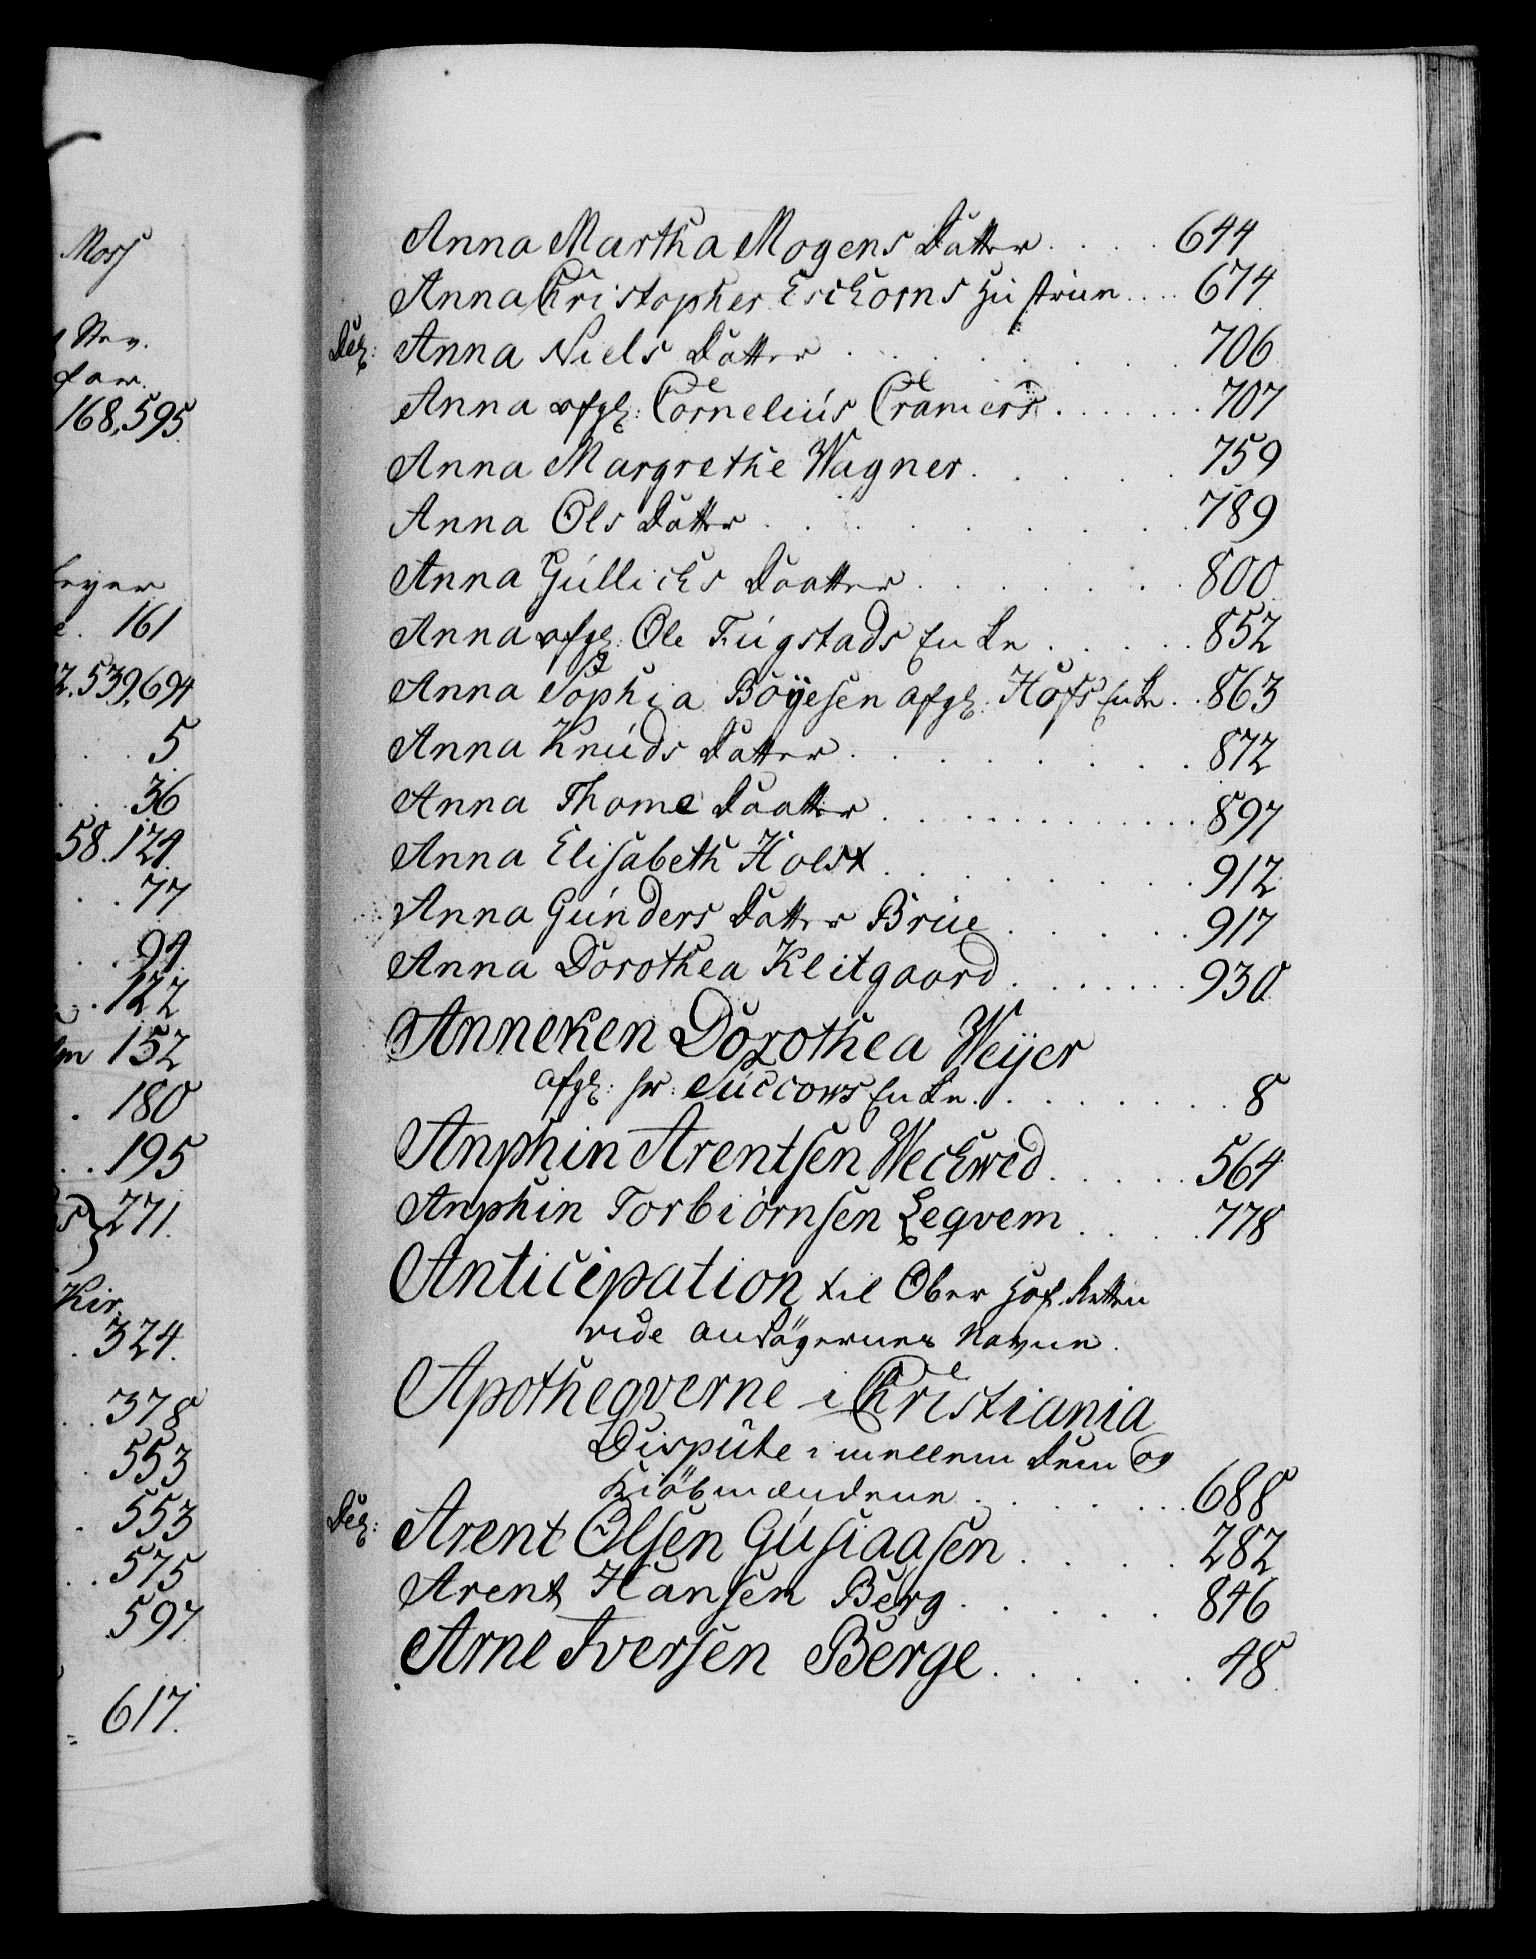 Mors
Nev.
far.
168,595.
feyer
161
2.539,694
5.
36
58.124.
77
94.
122
152
180
195
271.
Kir.
324.
378
553
553
575
597
617.
Anna Martha Mogens Datter .... 644
Anna Christopher Eschorns Hustrue .... 674
Deg: Anna Niels Datter ...... 706
Anna afgl: Cornelius Cramers ...... 707
Anna Margrethe Wagner ..... 759
Anna Ols Datter ...... 789
Anna Gullichs Daatter ...... 800
Anna afgl: Ole Fugstads Enke ..... 852
Anna Sophia Böyesen afgl: Hofs Enke .. 863
Anna Knuds Datter ....... 872
Anna Thome Daatter ....... 897
Anna Elisabeth Holst ...... 912
Anna Gunders Datter Brue ..... 917
Anna Dorothea Klitgaard ...... 930
Anneken Dorothea Weyer
afgl: hr: Succows Enke ....... 8
Anphin Arentsen Weckwed ..... 564
Anphin Torbiörnsen Leqvem .... 778
Anticipation til Ober Hof-Retten
vide Ansögernes Navne.
Apotheqverne i Christiania
Dispute imellem dem og
Kiöbmændene ...... 688
Deg: Arent Olsen Gusiaasen .... 282
Arent Hansen Berg ..... 846
Arne Iversen Berge ..... 48